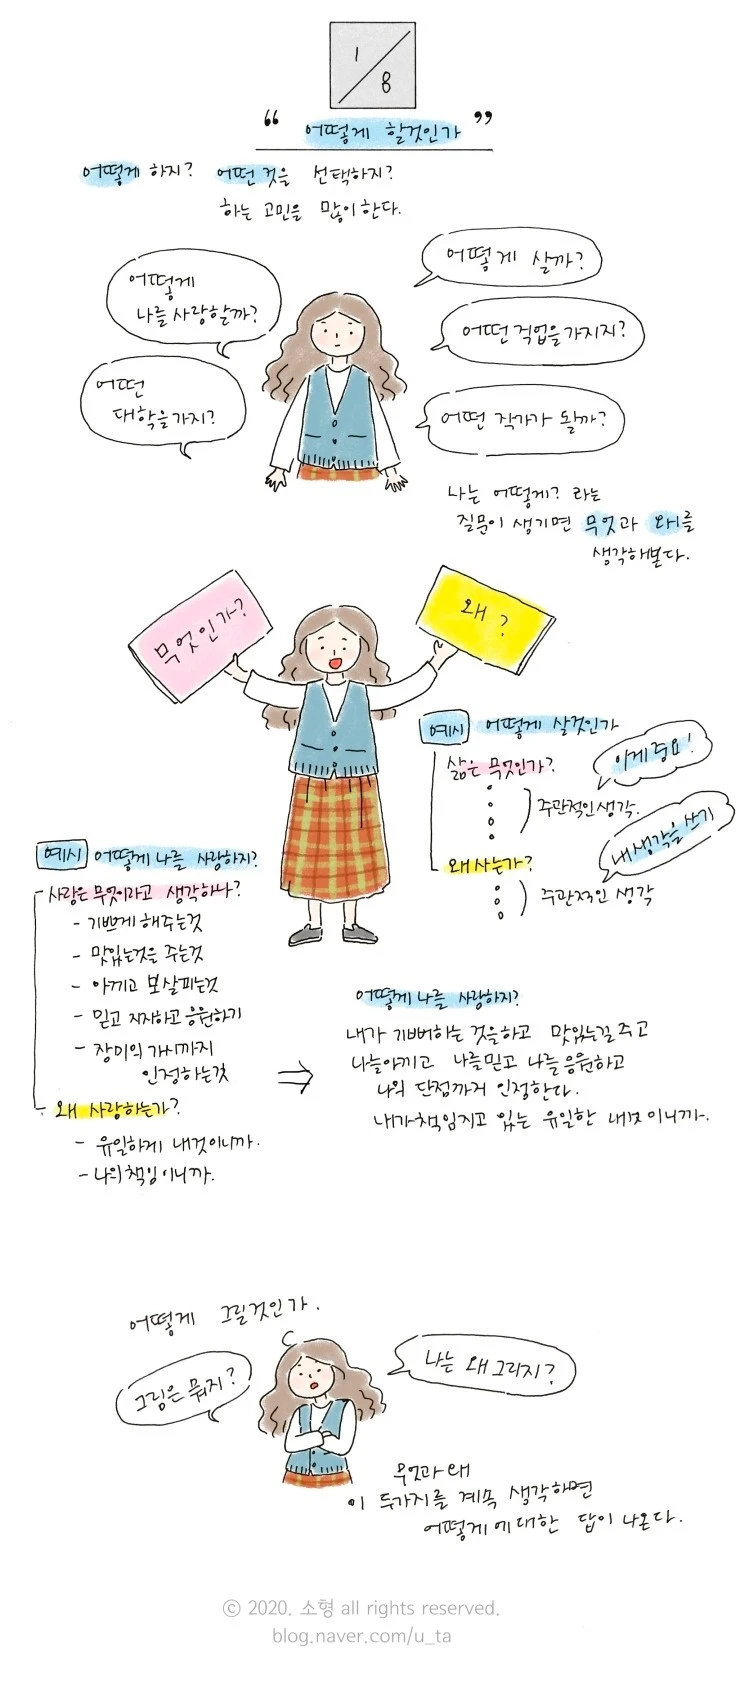 1/8
“ 어떻게 할것인가 ”
어떻게 하지? 어떤 것을 선택하지?
하는 고민을 많이한다.
어떻게
나를 사랑할까?
어떻게 살까?
어떤 직업을가지지?
어떤
대학을가지?
어떤 작가가 될까?
나는 어떻게? 라는
질문이 생기면 무엇과 왜를
생각해본다.
무엇인가?
왜?
예시 어떻게 살것인가
삶은 무엇인가?
이게중요!
주관적인생각.
내생각을 쓰기
왜 사는가?
주관적인 생각
예시 어떻게 나를 사랑하지?
사랑은 무엇이라고 생각하나?
- 기쁘게 해주는것
- 맛있는것을 주는것
- 아끼고 보살피는것
- 믿고 지지하고 응원하기
- 장미의 가시까지
인정하는것
왜 사랑하는가?
- 유일하게 내것이니까.
- 나의책임이니까.
⇒
어떻게 나를 사랑하지?
내가 기뻐하는 것을하고 맛있는걸 주고
나를아끼고 나를믿고 나를응원하고
나의 단점까지 인정한다.
내가책임지고 있는 유일한 내것 이니까.
어떻게 그릴것인가.
그림은 뭐지?
나는 왜그리지?
무엇과왜
이 두가지를 계속 생각하면
어떻게에대한 답이 나온다.
© 2020. 소형 all rights reserved.
blog.naver.com/u_ta